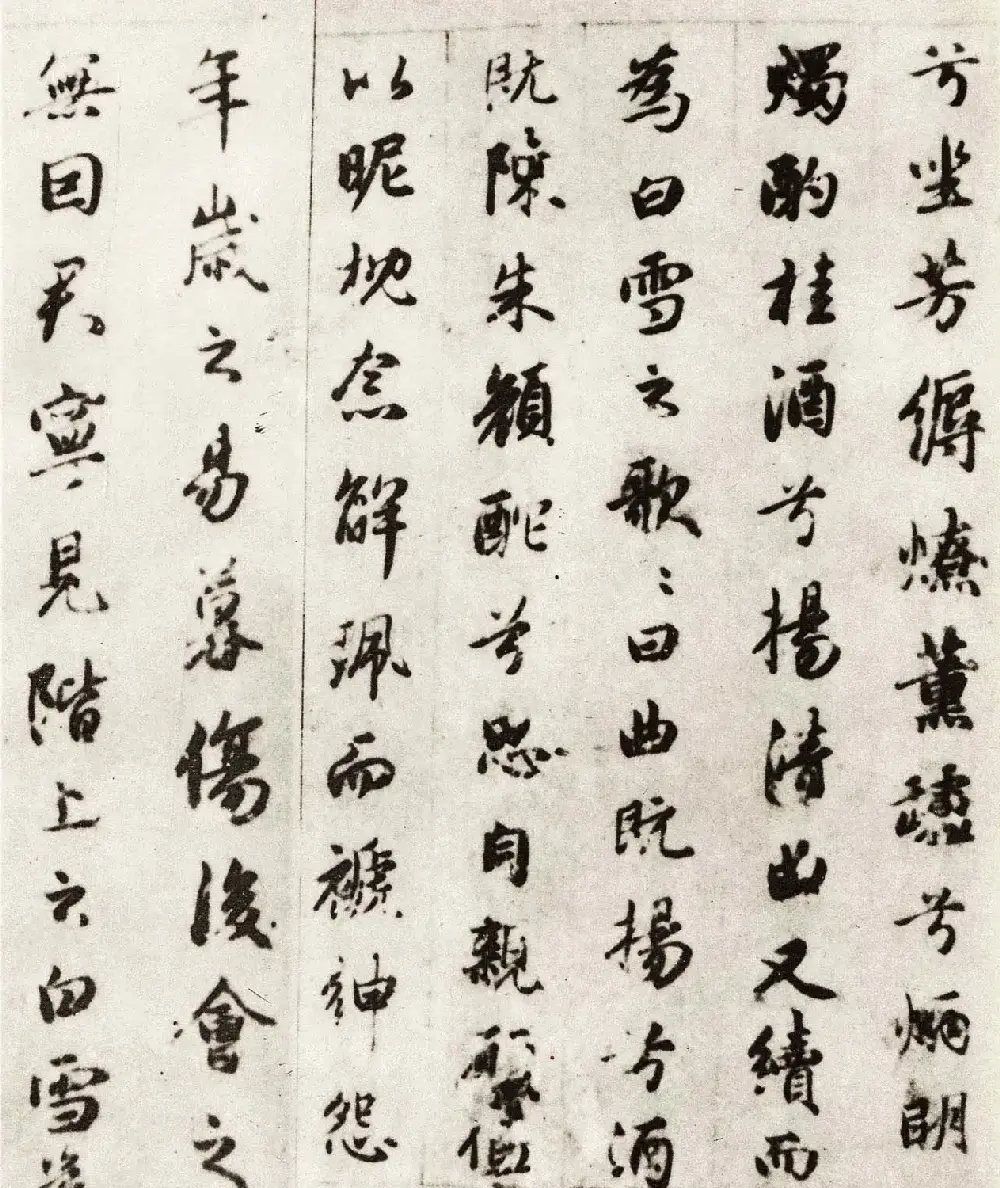 兮坐芳縟燎薰爐兮炳明
燭酌桂酒兮揚清曲又續而
為白雪之歌〻曰曲既揚兮酒
既陳朱顏酡兮思自親
以昵枕念解珮而褫紳怨
年歲之易暮傷後會之
無因君寧見階上之白雪